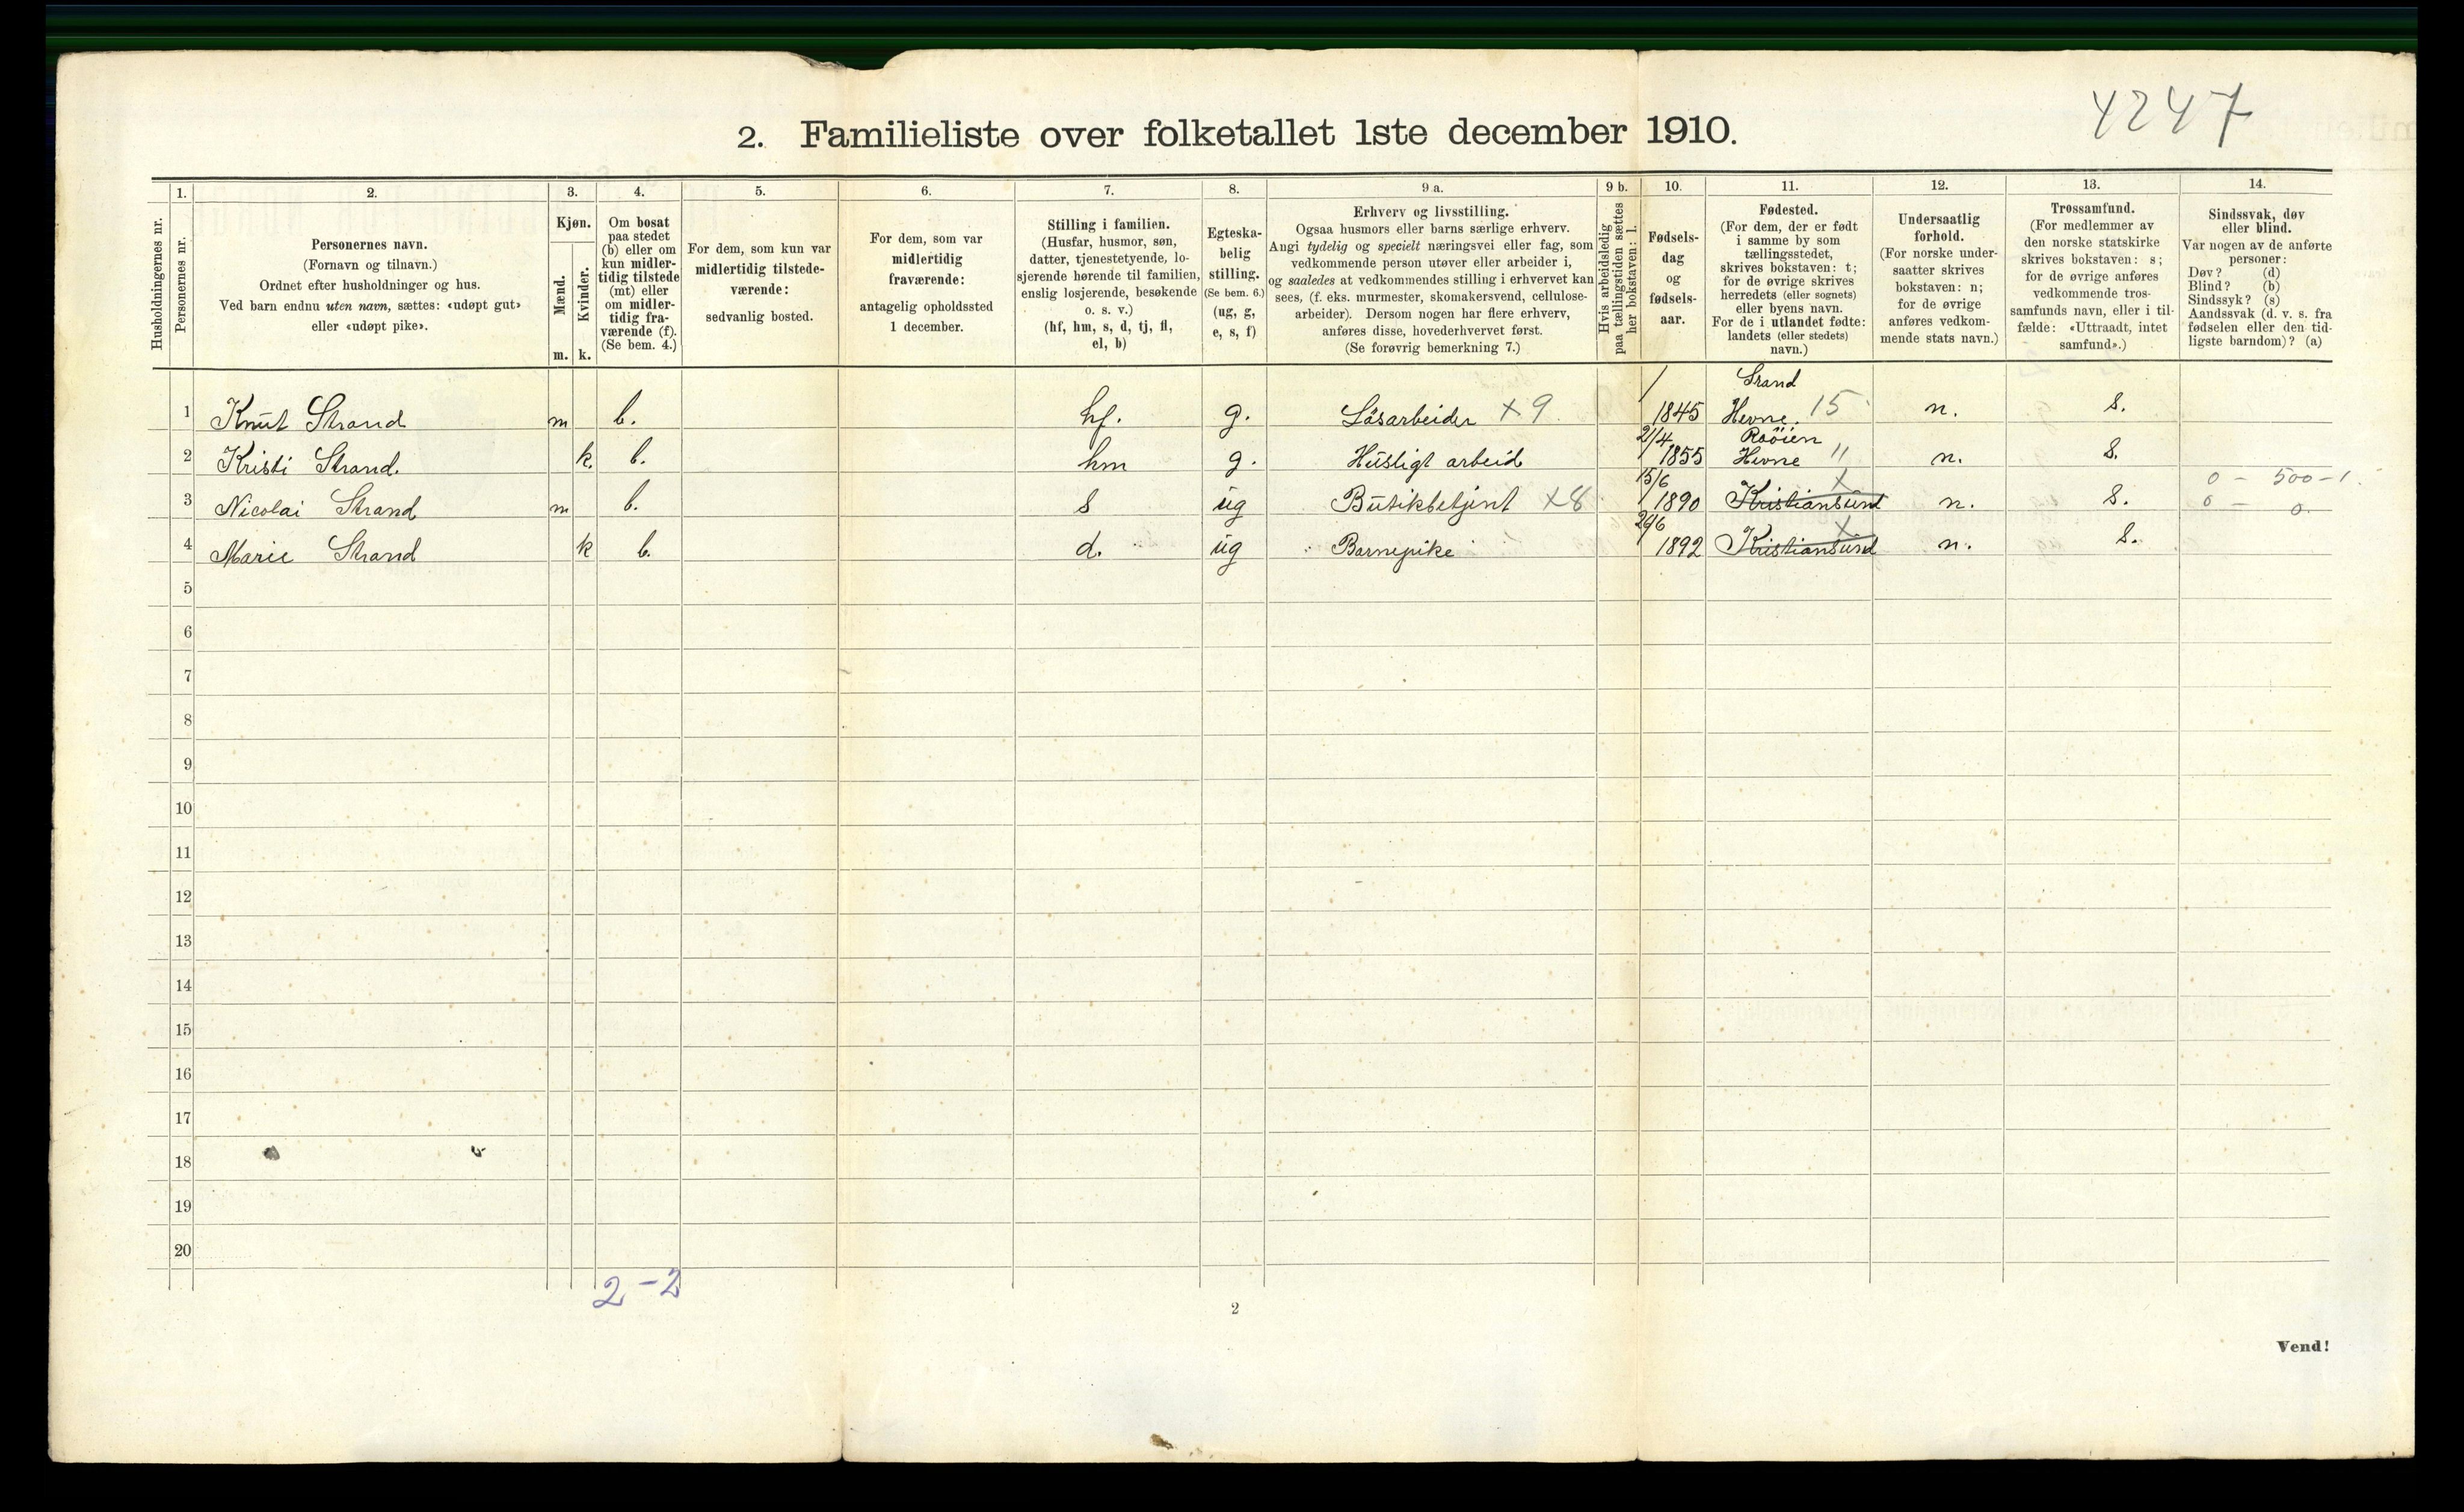 4247
2. Familieliste over folketallet 1ste december 1910.
1. 2. 3. 4. 5. 6. 7. 8. 9 a. 9 b. 10. 11. 12. 13. 14.
Husholdningernes nr.
Personernes nr.
Personernes navn.
(Fornavn og tilnavn.)
Ordnet efter husholdninger og hus.
Ved barn endnu uten navn, sættes: «udøpt gut»
eller «udøpt pike».
Kjøn.
Mænd.
Kvinder.
m. k.
Om bosat
paa stedet
(b) eller om
kun midler-
tidig tilstede
(mt) eller
om midler-
tidig fra-
værende (f).
(Se bem. 4.)
For dem, som kun var
midlertidig tilstede-
værende:
sedvanlig bosted.
For dem, som var
midlertidig
fraværende:
antagelig opholdssted
1 december.
Stilling i familien.
(Husfar, husmor, søn,
datter, tjenestetyende, lo-
sjerende hørende til familien,
enslig losjerende, besøkende
o. s. v.)
(hf, hm, s, d, tj, fl,
el, b)
Egteska-
belig
stilling.
(Se bem. 6.)
(ug, g,
e, s, f)
Erhverv og livsstilling.
Ogsaa husmors eller barns særlige erhverv.
Angi tydelig og specielt næringsvei eller fag, som
vedkommende person utøver eller arbeider i,
og saaledes at vedkommendes stilling i erhvervet kan
sees, (f. eks. murmester, skomakersvend, cellulose-
arbeider). Dersom nogen har flere erhverv,
anføres disse, hovederhvervet først.
(Se forøvrig bemerkning 7.)
Hvis arbeidsledig
paa tællingstiden sættes
her bokstaven: l.
Fødsels-
dag
og
fødsels-
aar.
Fødested.
(For dem, der er født
i samme by som
tællingsstedet,
skrives bokstaven: t;
for de øvrige skrives
herredets (eller sognets)
eller byens navn.
For de i utlandet fødte:
landets (eller stedets)
navn.)
Undersaatlig
forhold.
(For norske under-
saatter skrives
bokstaven: n;
for de øvrige
anføres vedkom-
mende stats navn.)
Trossamfund.
(For medlemmer av
den norske statskirke
skrives bokstaven: s;
for de øvrige anføres
vedkommende tros-
samfunds navn, eller i til-
fælde: «Uttraadt, intet
samfund».)
Sindssvak, døv
eller blind.
Var nogen av de anførte
personer:
Døv? (d)
Blind? (b)
Sindssyk? (s)
Aandssvak (d. v. s. fra
fødselen eller den tid-
ligste barndom)? (a)
/ Strand
1 Knut Strand m b. hf. g. Løsarbeider x 9 1845 Hevne. 15 n. s.
21/4 Røøien
2 Kristi Strand. k. b. hm g. Husligt arbeid 1855 Hevne " n. s.
15/6 x 0 - 500 - 1.
3 Nicolai Strand m b. s ug Butikbetjent x 8 1890 Kristiansund n. s. 0 - 0.
29/6 x
4 Marie Strand k b. d. ug Barnepike 1892 Kristiansund n. s.
5
6
7
8
9
10
11
12
13
14
15
16
17
18
19
20
2 - 2
2
Vend!